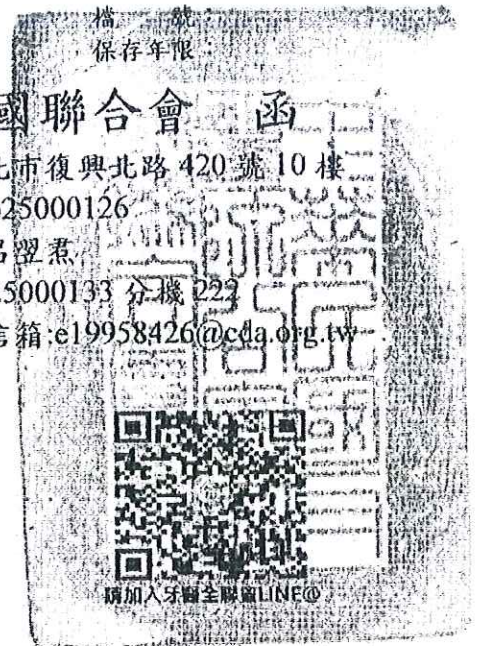 檔　　號：
保存年限：
國聯合會　函
北市復興北路 420 號 10 樓
25000126
呂翌煮
25000133 分機 222
信箱:e19958426@cda.org.tw
請加入牙醫全聯會LINE@